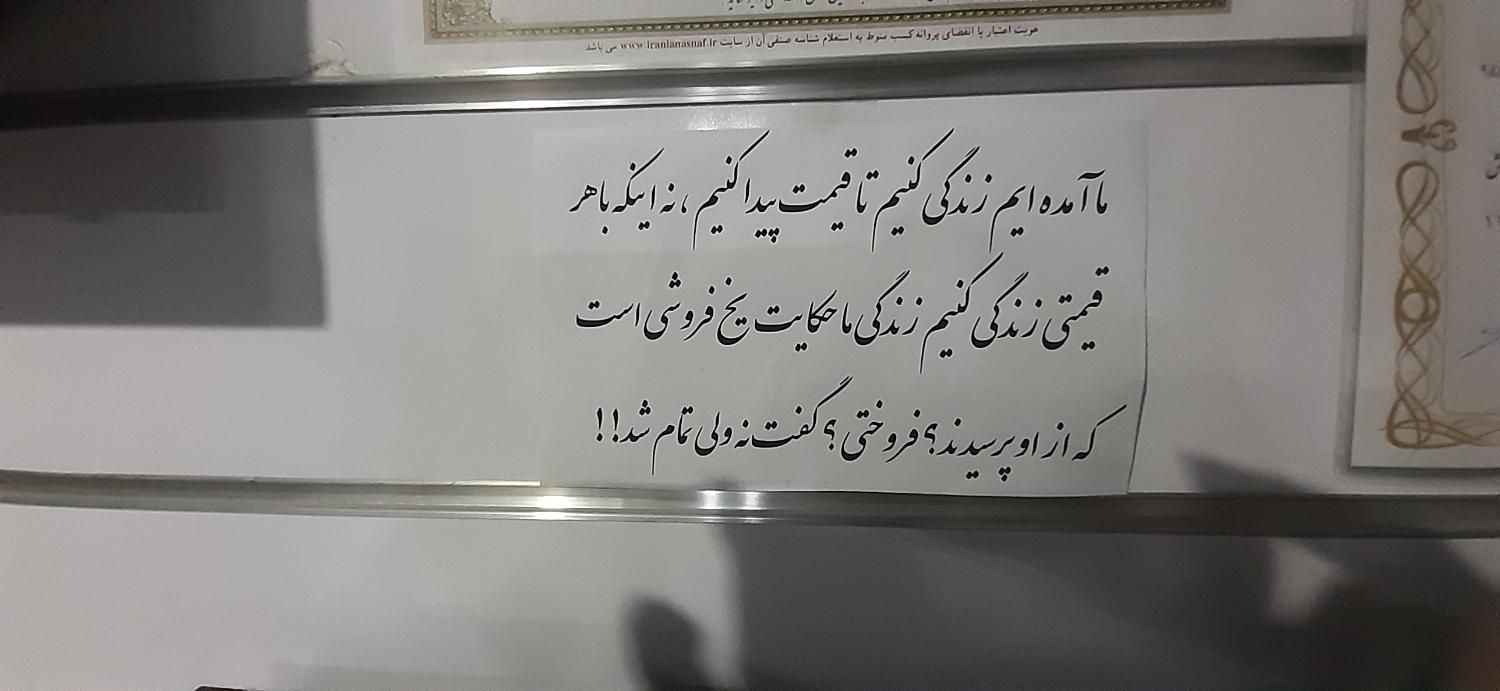 هویت اعتبار یا انقضای پروانه کسب منوط به استعلام شناسه صنفی آن از سایت www.iranianasnaf.ir می باشد
ما آمده ایم زندگی کنیم تا قیمت پیدا کنیم ، نه اینکه با هر
قیمتی زندگی کنیم زندگی ما حکایت یخ فروشی است
که از او پرسیدند؟ فروختی ؟ گفت نه ولی تمام شد!!